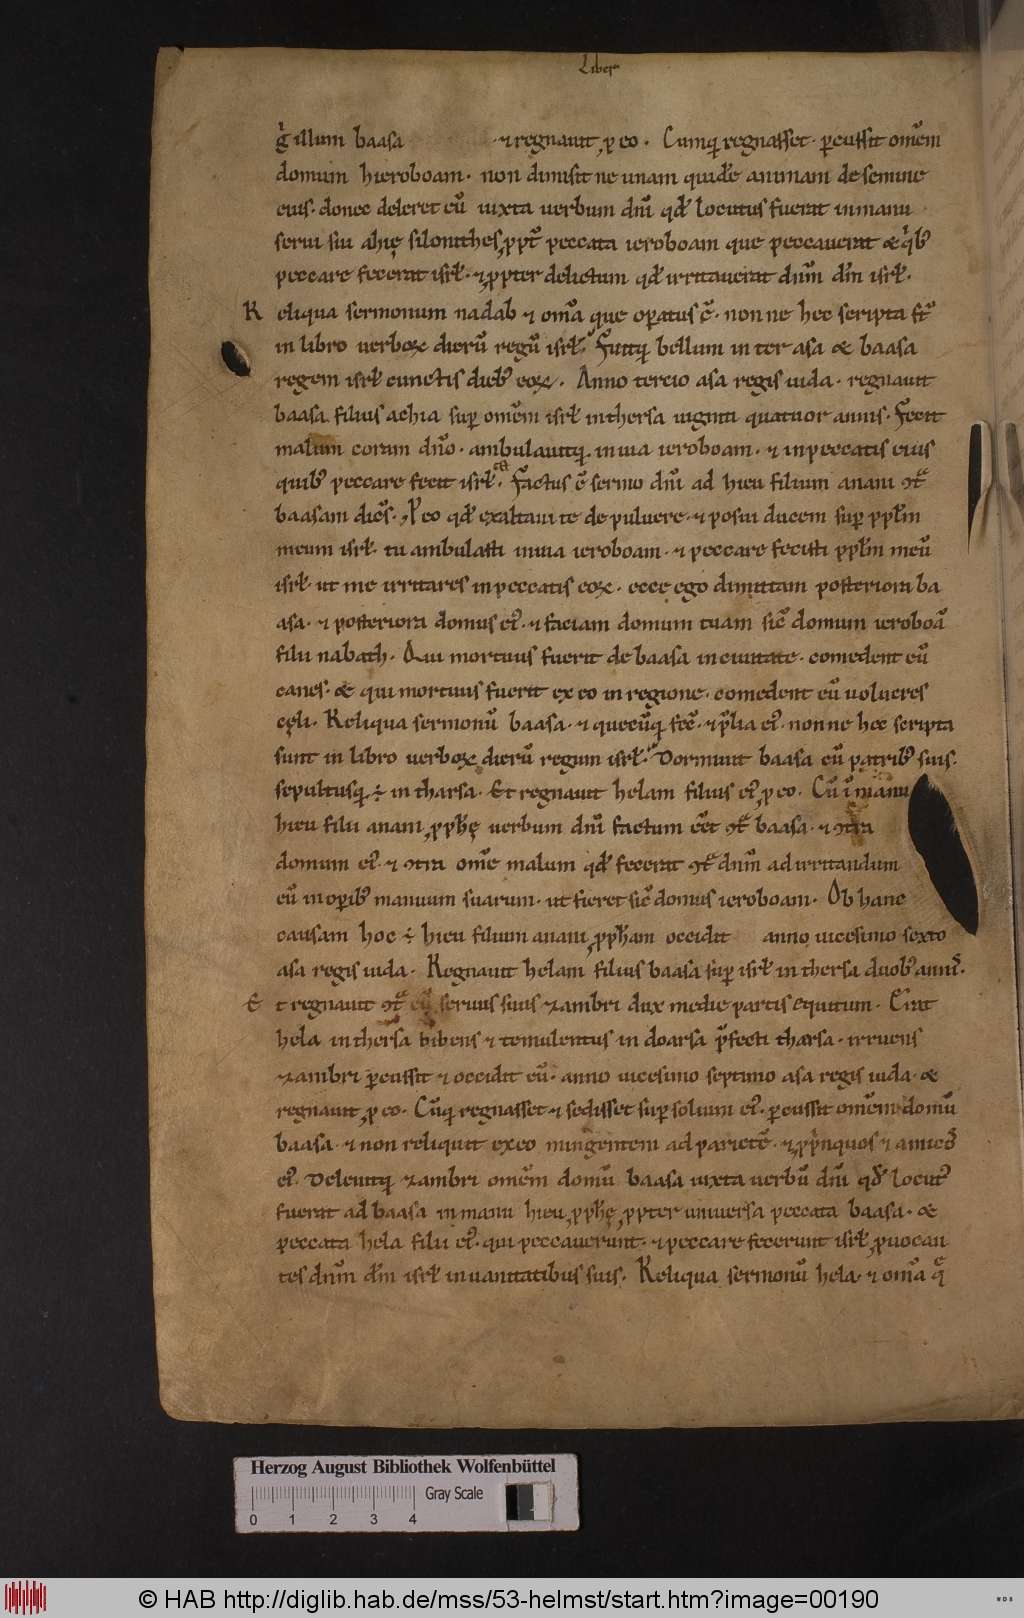 Liber
gͥ illum baasa ⁊ regnauit ꝓ eo. Cumqꝫ regnasset. ꝑcussit om̄em
domum hieroboam. non dimisit ne unam quidē animam de semine
eius. donec deleret eū iuxta uerbum dn̄i qd̄ locutus fuerat in manu
serui sui ahię silonithes, ꝓpt̄ peccata ieroboam que peccauerat & qͥbꝫ
peccare fecerat isrł. ⁊ ꝓpter delictum qd̄ irritauerat dn̄m dm̄ isrł.
Reliqua sermonum nadab ⁊ om̄a que oꝑatus ē. nonne hec scripta st̄
in libro uerboꝝ dierū regū isrł. Fuitqꝫ bellum inter asa & baasa
regem isrł cunctis diebꝫ eoꝝ. Anno tercio asa regis iuda. regnauit
baasa filius achia suꝑ om̄em isrł in thersa uiginti quatuor annis. Fecit
malum coram dn̄o. ambulauitqꝫ in uia ieroboam. ⁊ in peccatis eius
quibꝫ peccare fecit isrł. Factus ē sermo dn̄i ad hieu filium anani ꝯt̄
baasam dicēs. Pͥ eo qd̄ exaltaui te de puluere. ⁊ posui ducem suꝑ ppłm
meum isrł. tu ambulasti in uia ieroboam. ⁊ peccare fecisti ppłm meū
isrł ut me irritares in peccatis eoꝝ. ecce ego dimittam posteriora ba
asa. ⁊ posteriora domus eiꝰ. ⁊ faciam domum tuam sic̄ domum ieroboā
filii nabath. Qui mortuus fuerit de baasa in ciuitate. comedent eū
canes. & qui mortuus fuerit ex eo in regione. comedent eū uolucres
cęli. Reliqua sermonū baasa. ⁊ quecūqꝫ fec̄. ⁊ p̄lia eiꝰ. nonne hec scripta
sunt in libro uerboꝝ dierū regum isrł. Dormiuit baasa cū patribꝫ suis.
sepultusqꝫ ÷ in tharsa. Et regnauit helam filius eiꝰ ꝓ eo. Cū ī manu
hieu filii anani, ꝓph̄ę uerbum dn̄i factum eēt ꝯt̄ baasa. ⁊ ꝯtra
domum eiꝰ. ⁊ ꝯtra om̄e malum qd̄ fecerat ꝯt̄ dn̄m ad irritandum
eū in oꝑibꝫ manuum suarum. ut fieret sic̄ domus ieroboam. Ob hanc
causam hoc ÷ hieu filium anani, ꝓph̄am occidit anno uicesimo sexto
asa regis iuda. Regnauit helam filius baasa suꝑ isrł in thersa duobꝫ annis.
Et regnauit ꝯt̄ eū seruus suus zambri dux medie partis equitum. Erat
hela in thersa bibens ⁊ temulentus in doarsa p̄fecti tharsa. irruens
zambri ꝑcussit ⁊ occidit eū. anno uicesimo septimo asa regis iuda. &
regnauit ꝓ eo. Cūqꝫ regnasset ⁊ sedisset suꝑ solium eiꝰ. ꝑcussit om̄em domū
baasa. ⁊ non reliquit ex eo mingentem ad parietē. ⁊ ꝓpͥnquos ⁊ amicos
eiꝰ. Deleuitqꝫ zambri om̄em domū baasa iuxta uerbū dn̄i qd̄ locutꝰ
fuerat ad baasa in manu hieu, ꝓph̄ę, ꝓpter uniuersa peccata baasa. &
peccata hela filii eiꝰ. qui peccauerunt. ⁊ peccare fecerunt isrł ꝓuocan
tes dn̄m dm̄ isrł in uanitatibus suis. Reliqua sermonū hela. ⁊ om̄a q̄
Herzog August Bibliothek Wolfenbüttel
Gray Scale
0 1 2 3 4
© HAB http://diglib.hab.de/mss/53-helmst/start.htm?image=00190